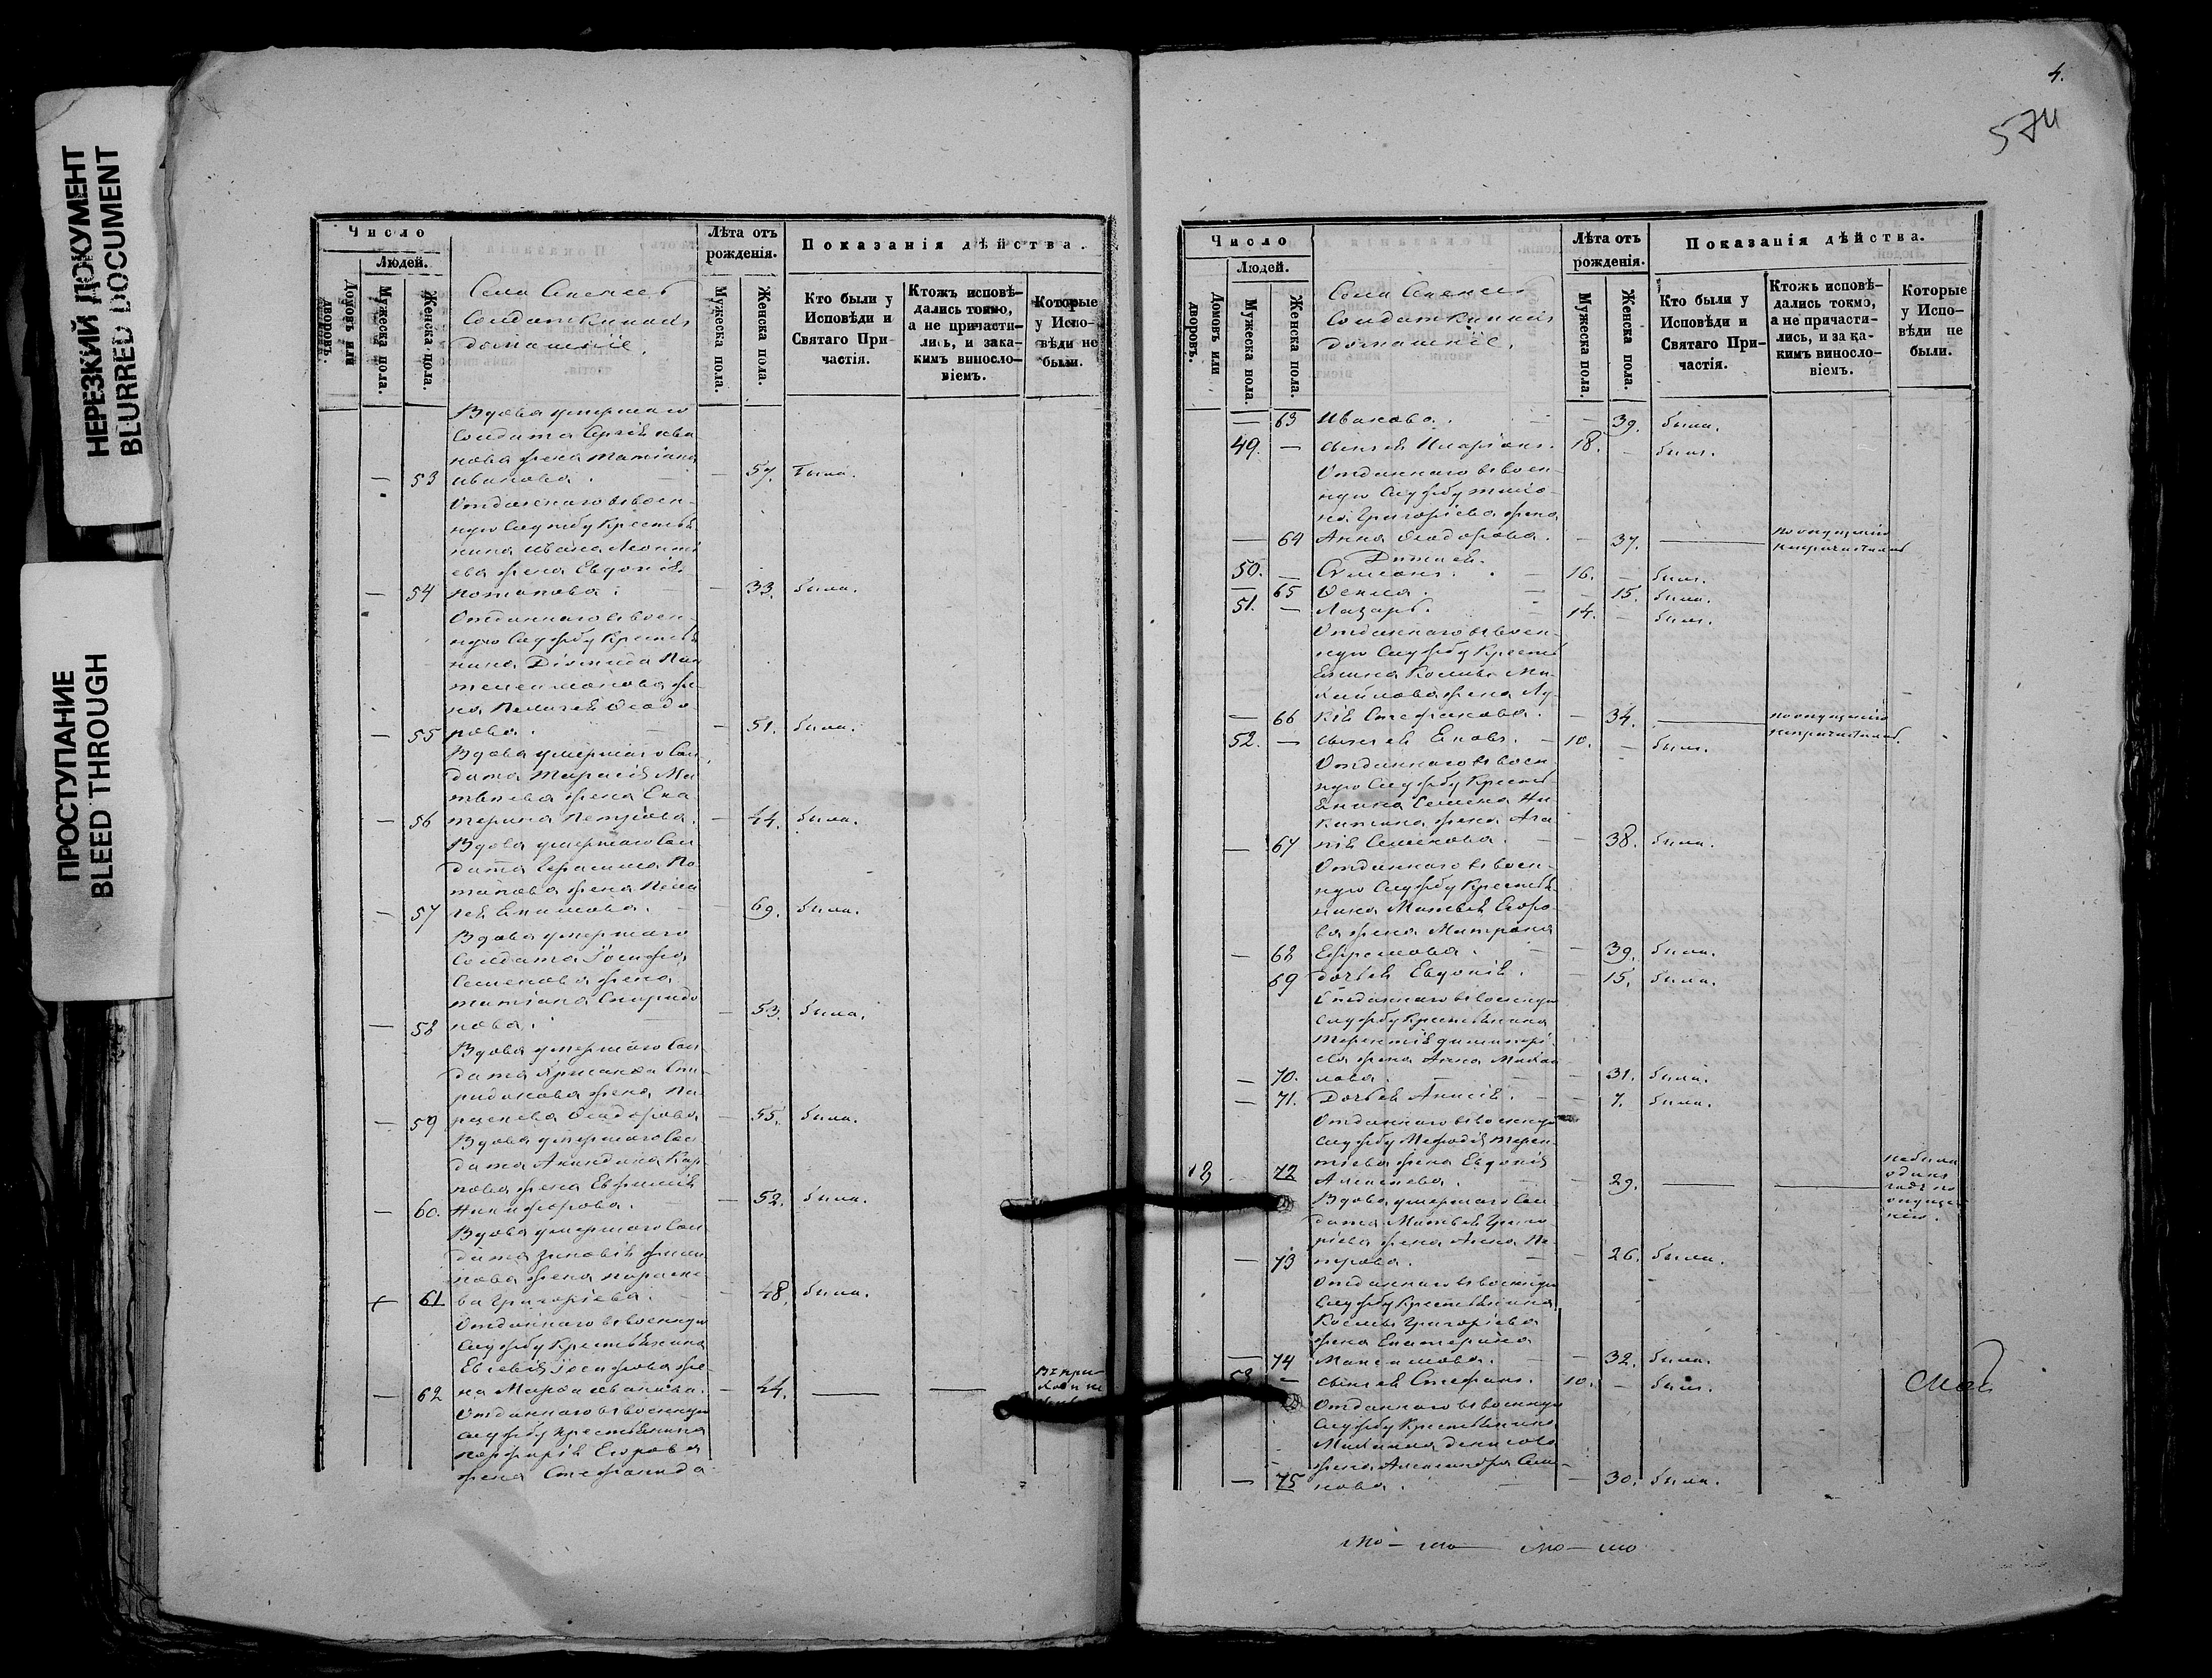 НЕРЕЗКИЙ ДОКУМЕНТ
BLURRED DOCUMENT
ПРОСТУПАНИЕ
BLEED THROUGH
Число
Людей.
Домовъ или дворовъ.
Мужеска пола.
Женска пола.
Села
Солдаткины
домашніе.
Лѣта отъ рожденія.
Мужеска пола.
Женска пола.
Показанія дѣйства.
Кто были у Исповѣди и Святаго Причастія.
Ктожъ исповѣдались токмо, а не причастились, и закакимъ винословіемъ.
Которые у Исповѣди не были.
Вдова умершаго
Солдата Сергія Ива
нова жена Татіана
— 53 Иванова. — 57. была.
Отданнаго въ воен-
ную Службу Крестья
нина Ивана Леонті
ева жена Евдокія
— 54 Потапова. — 33. была.
Отданнаго въ воен-
ную Службу Крестья
нина Діомида Пан
телеимонова же-
на Пелагея Ѳеодо
— 55 рова. — 51. была.
Вдова умершаго Сол
дата Тарасія Ма
твѣева жена Ека
— 56 терина Петрова. — 44. была.
Вдова умершаго Сол
дата Герасима По-
тапова жена Пела
— 57 гея Екимова. — 69. была.
Вдова умершаго
Солдата Іосифа
Семенова жена
Татіана Спиридо
— 58 нова. — 53. была.
Вдова умершаго Сол
дата Спи-
ридонова жена Па
раскева Ѳеодорова
— 59 — 55. была.
Вдова умершаго Сол
дата Акиндина Кар-
пова жена Евфимія
— 60. Никифорова. — 52. была.
Вдова умершаго Сол
дата Зиновія Филип
пова жена Параске-
61 ва Григорьева. — 48. была.
Отданнаго въ военную
Службу Крестьянина
Евсевія Іосифова же-
— 62 на Марѳа Иванова. — 44. — —
Отданнаго въ военную
службу крестьянина
Порфирія Егорова
жена Стефанида
4.
574
Число
Людей.
Домовъ или дворовъ.
Мужеска пола.
Женска пола.
Села
Солдаткины
домашніе.
Лѣта отъ рожденія.
Мужеска пола.
Женска пола.
Показанія дѣйства.
Кто были у Исповѣди и Святаго Причастія.
Ктожъ исповѣдались токмо, а не причастились, и за какимъ винословіемъ.
Которые у Исповѣди не были.
— 63 Иванова. — 39. была.
49. — сынъ ея Иларіонъ. 18. — былъ.
Отданнаго въ воен-
ную Службу
Григорьева жена
— 64 Анна Ѳеодорова. — 37. — по опущенію
Дѣти ея.
50. — Симеонъ. — 16. — былъ.
— 65 Ѳекла. — 15. была.
51. — Лазарь. 14. — былъ.
Отданнаго въ воен-
ную Службу Кресть
янина Космы Ми-
хайлова жена Лу-
— 66 кія Стефанова. — 34. — по опущенію
52. — сынъ ея Іаковъ. — 10. — былъ.
Отданнаго въ воен
ную Службу Кресть-
янина Семена Ни
китина жена Ага
— 67 пія Семенова. — 38. была.
Отданнаго въ воен-
ную Службу Крестья
нина Матвѣя Егоро-
ва жена Матрона
— 68 Ефремова. — 39. была.
69 дочь ея Евдокія. — 15. была.
Отданнаго въ военную
Службу Крестьянина
Терентія Димитрі-
ева жена Анна Михаи
— 70. лова. — 31. была.
— 71. Дочь ея Анисія. — 7. была.
Отданнаго въ военную
Службу Меѳодія Терен-
тіева жена Евдокія
72 Алексѣева. — 29. — — не была
одинъ
годъ по
опуще
нію.
Вдова умершаго Сол
дата Матвѣя Григо-
ріева жена Анна Пе-
— 73 трова. — 26. была.
Отданнаго въ военную
Службу Крестьянина
Космы Григорьева
жена Екатерина
— 74 Максимова. — 32. была.
53 — сынъ ея Стефанъ. 10. — былъ.
Отданнаго въ военную
Службу Крестьянина
Михаила Денисова
жена Александра Сим-
— 75 нова. — 30. была.